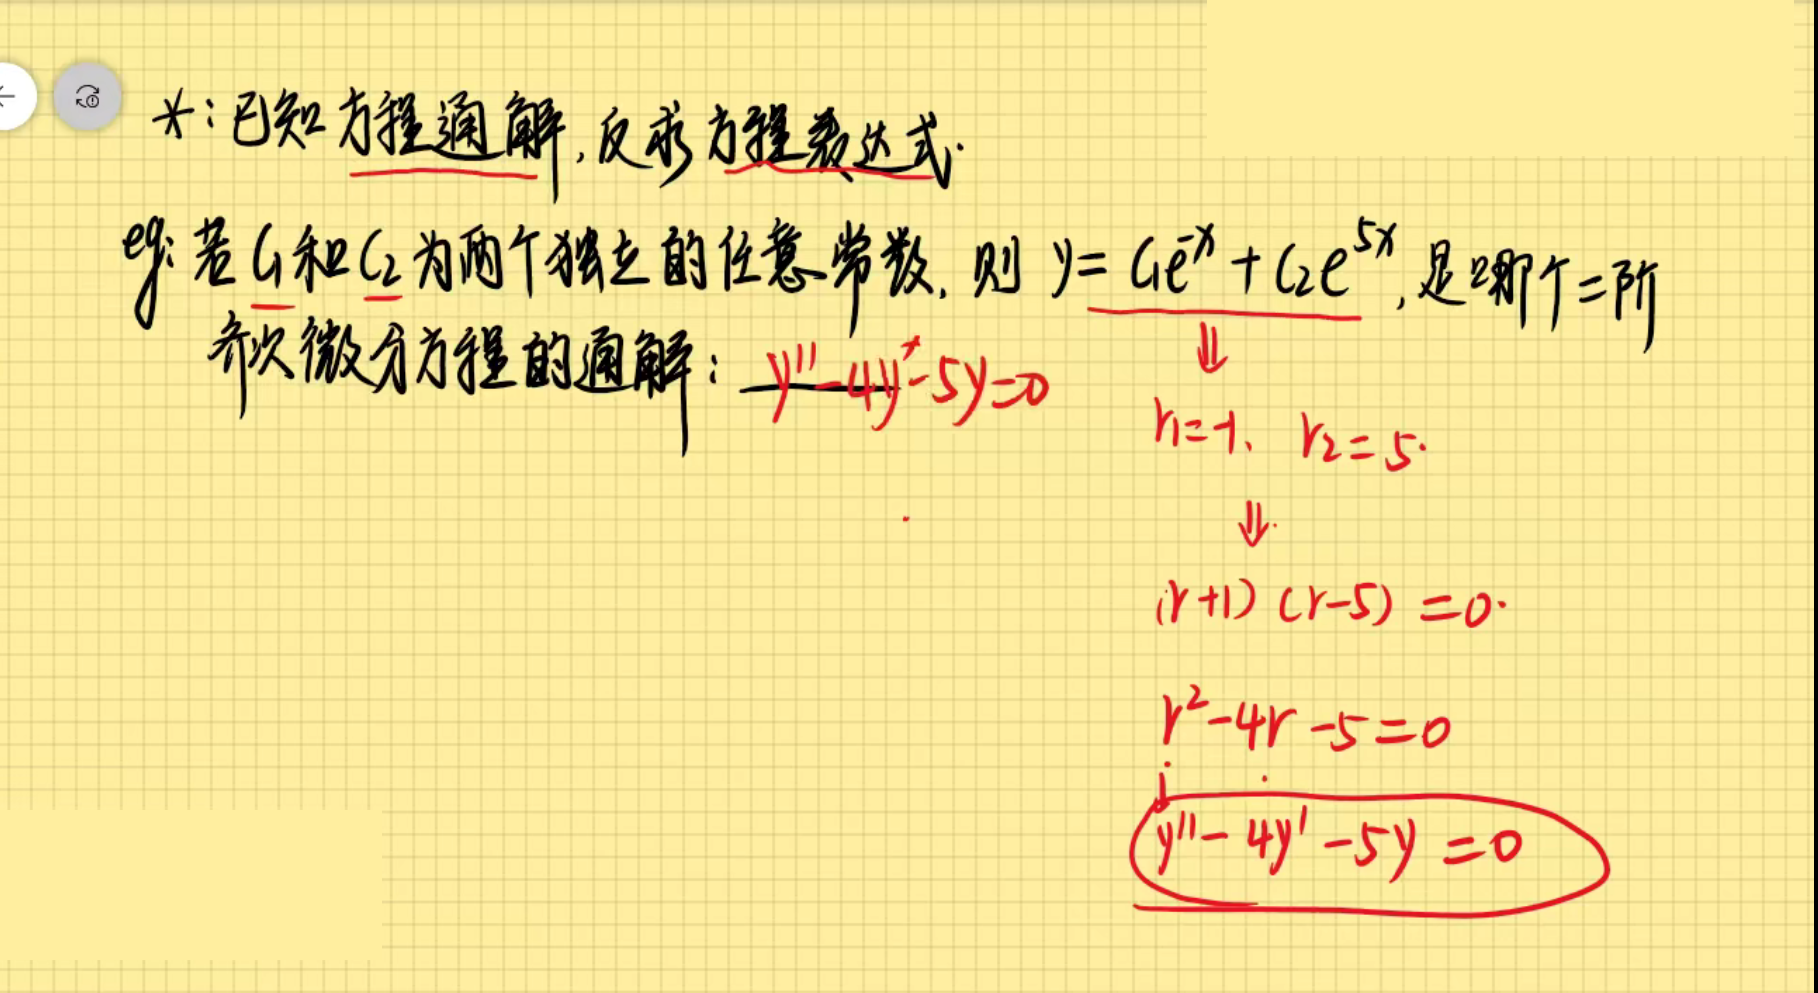 *:已知方程通解,反求方程表达式.
eg:若C1和C2为两个独立的任意常数,则 y=C1e^-x+C2e^5x,是哪个二阶
齐次微分方程的通解:y''-4y'-5y=0
⇓
r1=-1、r2=5.
⇓
(r+1)(r-5)=0.
r²-4r-5=0
↓
y''-4y'-5y=0